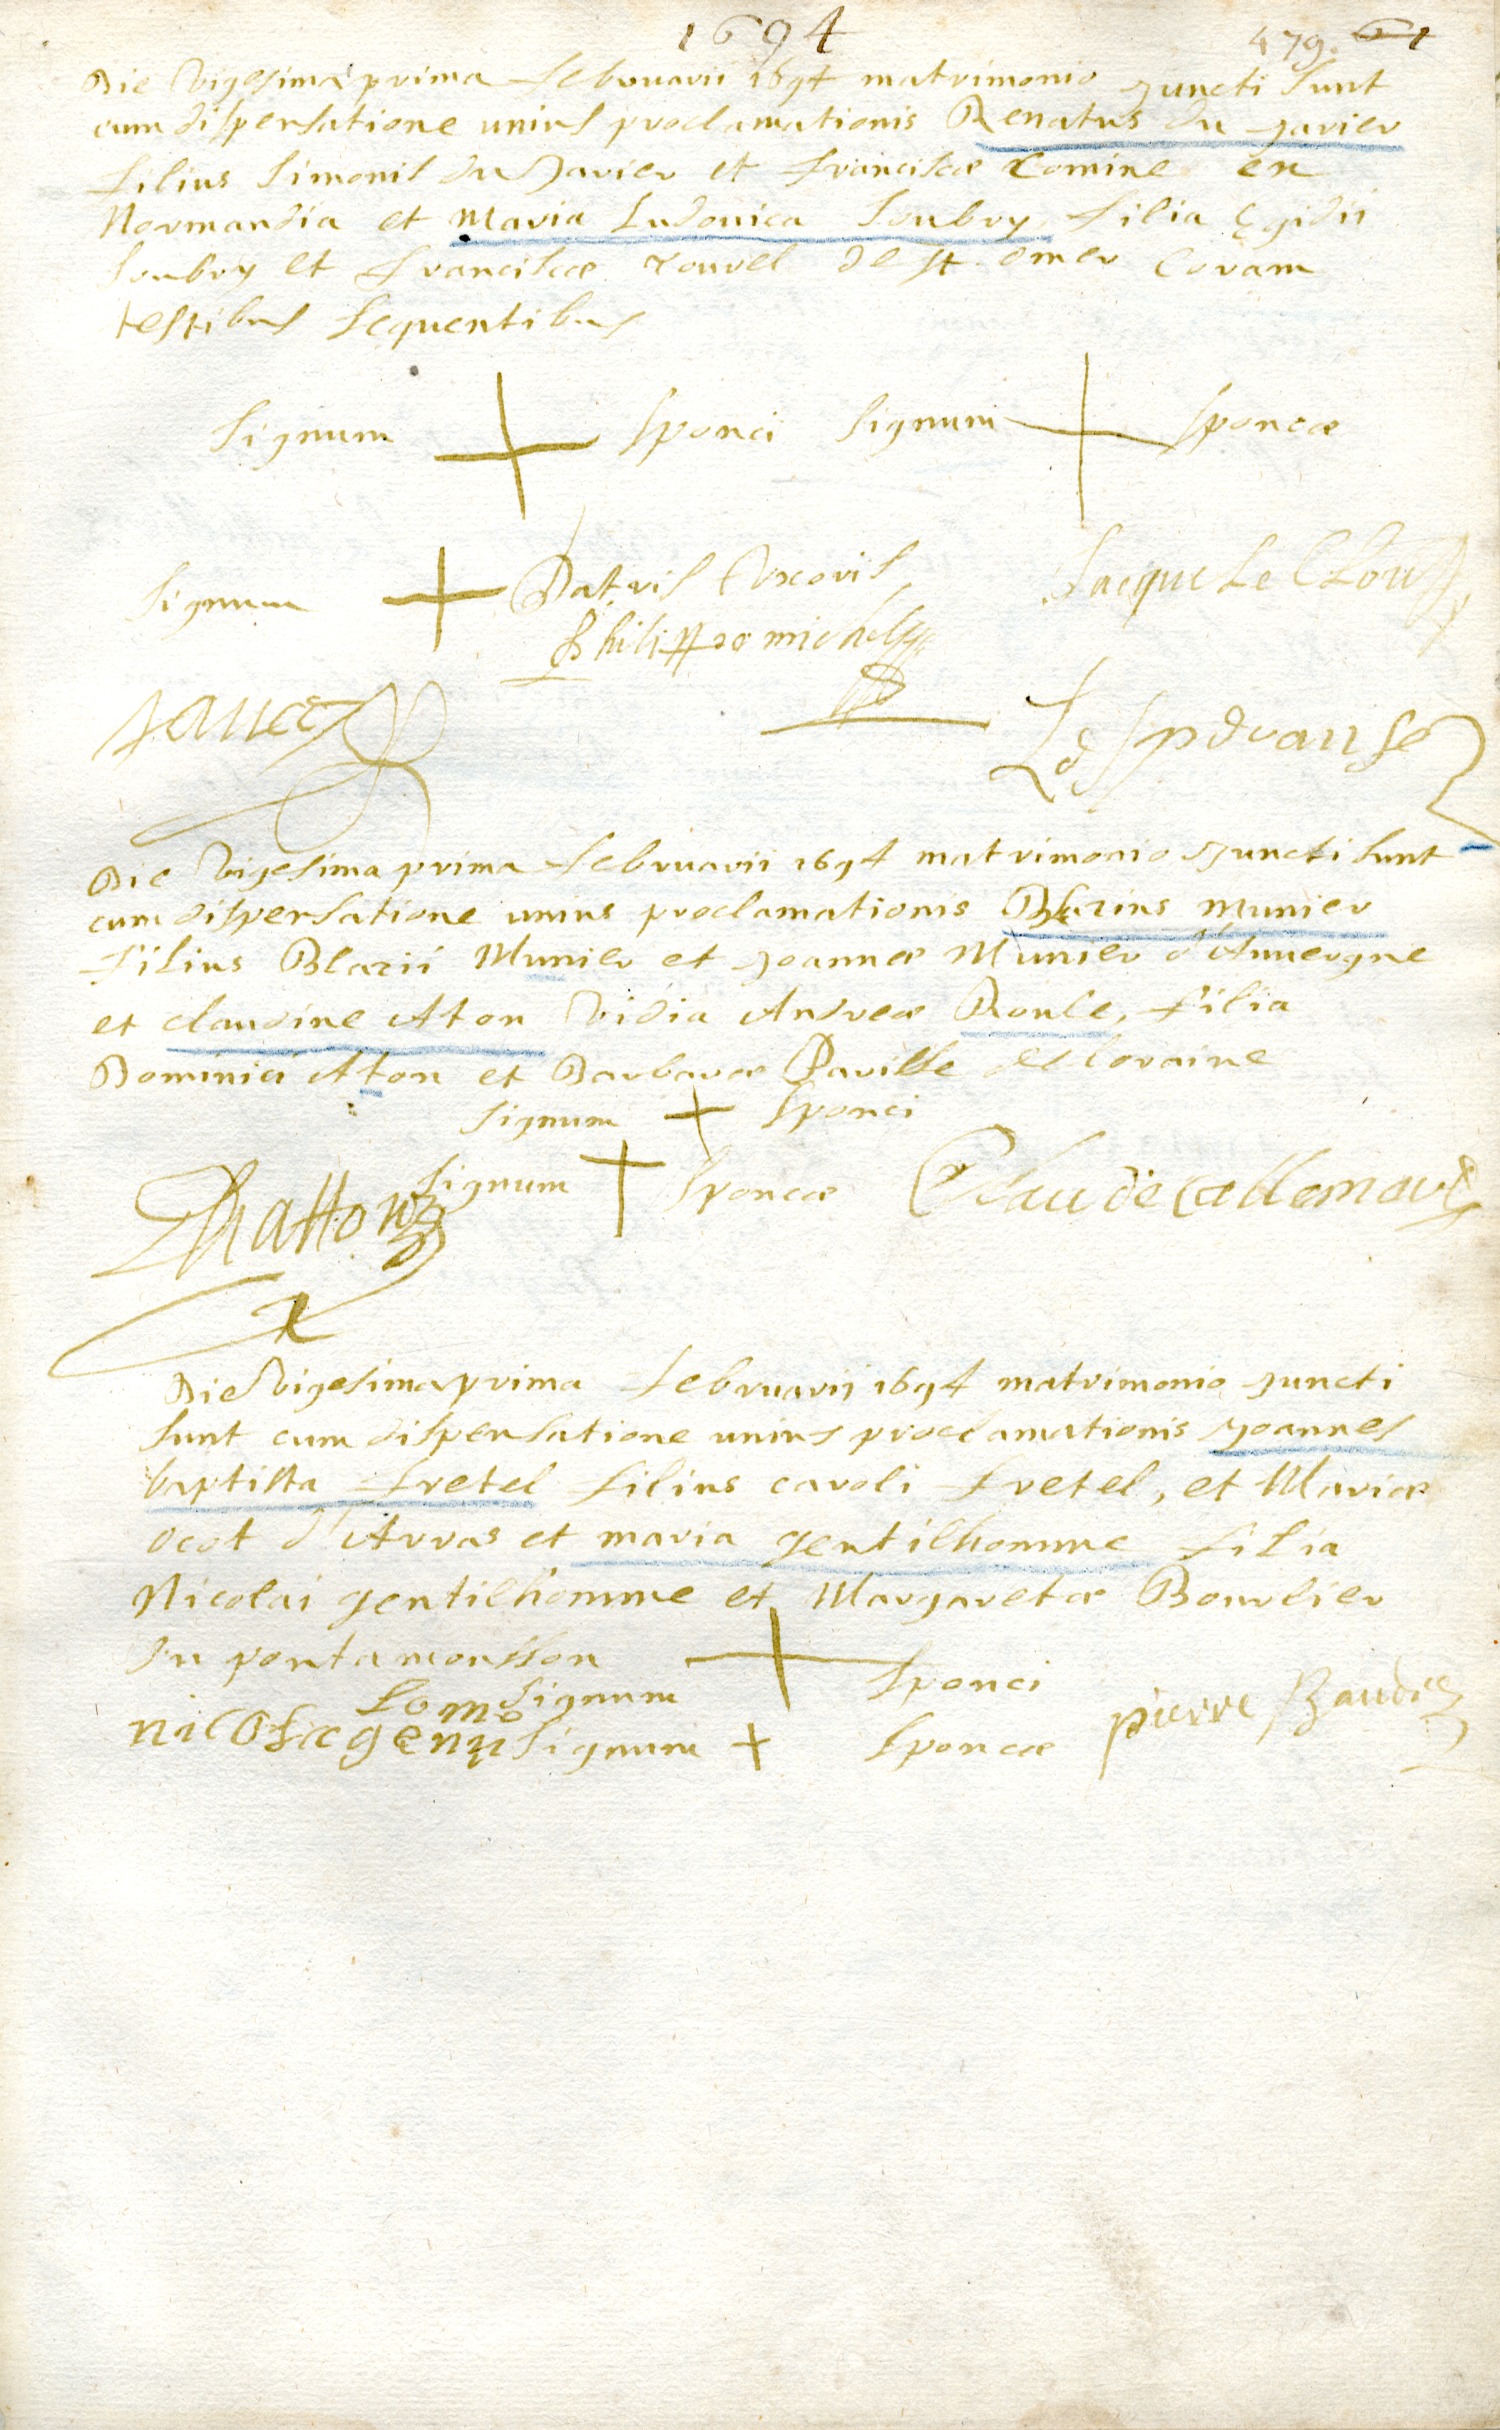 1694
479. 61
Die Vigesima prima februarii 1694 matrimonio juncti sunt
cum dispensatione unius proclamationis Renatus du javier
filius simonis du Javier et franciscæ Comine en
Normandia et Maria Ludovica Soubry filia Egidii
Soubry et franciscæ rouvel de st. omer Coram
testibus sequentibus
signum + sponci signum + sponcæ
signum + Patris Uxoris Jacque Le Clou
Philippe michel
Lesperanse
Die Vigesima prima februarii 1694 matrimonio juncti sunt
cum dispensatione unius proclamationis Blazius Munier
filius Blazii Munier et joannæ Munier d'Auvergne
et claudine Aton Vidia Andreæ Roule, filia
Dominici Aton et Barbaræ Paville de Loraine
signum + sponci
signum + sponcæ Claude
Die Vigesima prima februarii 1694 matrimonio juncti
sunt cum dispensatione unius proclamationis joannes
baptista fretel filius caroli fretel, et Mariæ
ocot d'Arras et maria gentilhomme filia
Nicolai gentilhomme et Margaretæ Bourlier
du pontamousson + sponci
signum pierre Baudie
nicolae genti lomo signum + sponcæ